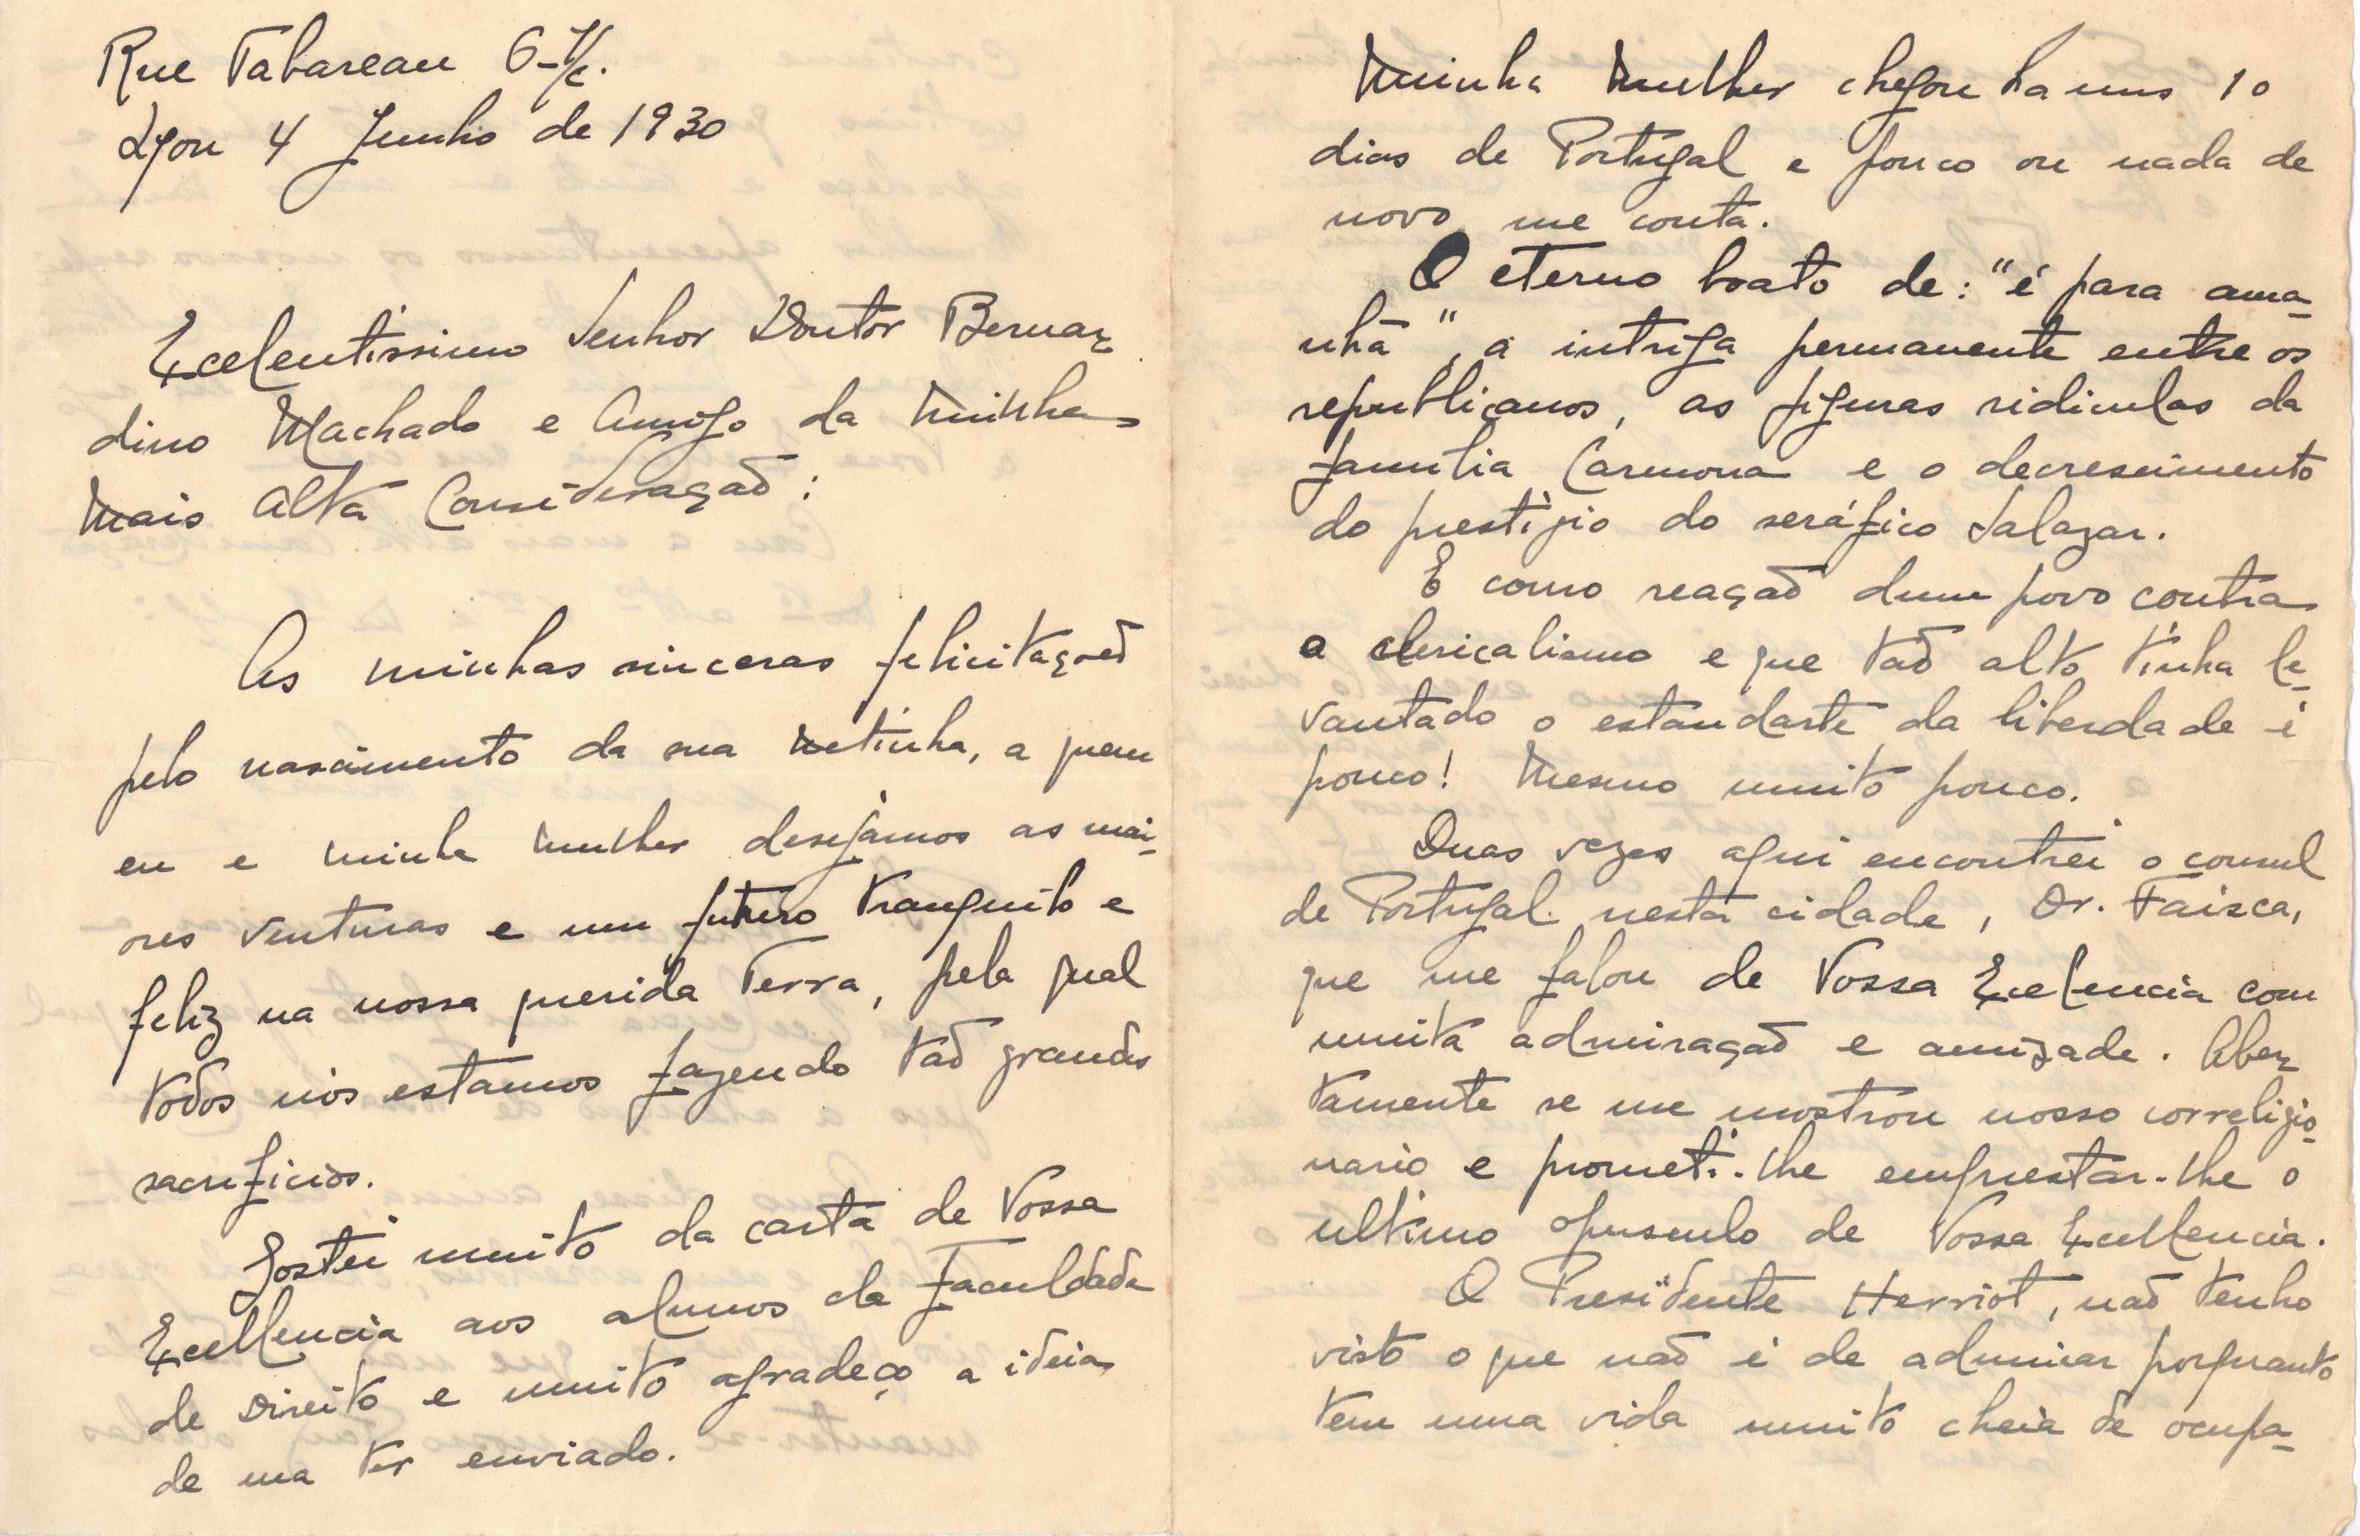 Rue Tabareau 6-1/c.
Lyon 4 Junho de 1930
Excelentissimo Senhor Doutor Bernar
dino Machado e Amigo da Minha
Mais Alta Consideração:
As minhas sinceras felicitações
pelo nascimento da sua netinha, a quem
eu e minha mulher desejâmos as mai-
ores venturas e um futuro tranquilo e
feliz na nossa querida Terra, pela qual
todos nós estamos fazendo tão grandes
sacrificios.
Gostei muito da carta de Vossa
Excellencia aos alunos da Faculdade
de Direito e muito agradeço a ideia
de ma ter enviado.
Minha mulher chegou ha uns 10
dias de Portugal e pouco ou nada de
novo me conta.
O eterno boato de: "é para ama-
nhã", a intriga permanente entre os
republicanos, as figuras ridiculas da
familia Carmona e o decrescimento
do prestigio do seráfico Salazar.
E como reação dum povo contra
o clericalismo e que tão alto tinha le-
vantado o estandarte da liberdade é
pouco! Mesmo muito pouco.
Duas vezes aqui encontrei o consul
de Portugal nesta cidade, Dr. Faisca,
que me falou de Vossa Excelencia com
muita admiração e amizade. Aber
tamente se me mostrou nosso correligio-
nario e prometi-lhe emprestar-lhe o
ultimo opusculo de Vossa Excellencia.
O Presidente Herriot, não tenho
visto o que não é de admirar porquanto
tem uma vida muito cheia de ocupa-